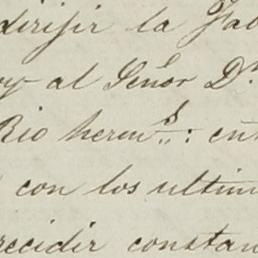 dirijir la Fab
oy al Señor Dn
Rio herms.: ent
con los ultim
recidir constan